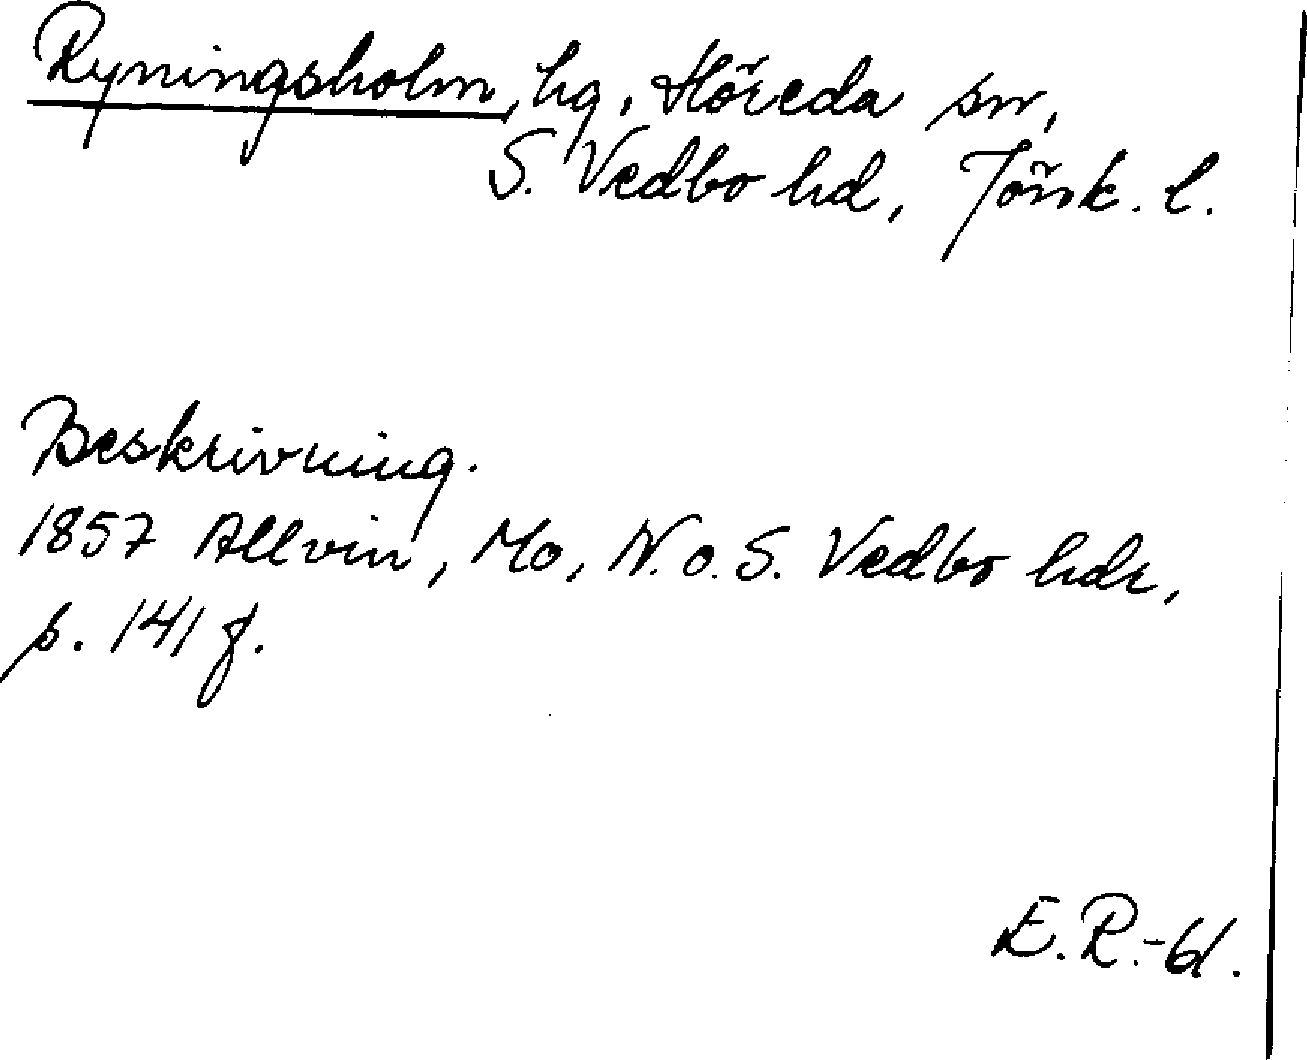 Ryningsholm, hg, Höreda sn,
S. Vedbo hd, Jönk. l.
Beskrivning.
1857 Allvin, Mo, N. o. S. Vedbo hdr,
s. 141 f.
E. R. -61.